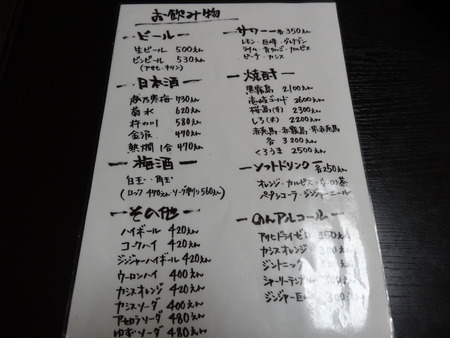 お飲み物
ービールー
生ビール 500えん
ビンビール 530えん
(アサヒ・キリン)
ー日本酒ー
730えん
菊水 620えん
580えん
金滴 470えん
熱燗1合 470えん
ー梅酒ー
白玉・角玉
(ロック 470えん・ソーダ割り560えん)
ーその他ー
ハイボール 420えん
コークハイ 420えん
ジンジャーハイボール 420えん
ウーロンハイ 400えん
カシスオレンジ 420えん
カシスソーダ 400えん
アセロラソーダ 480えん
ゆずソーダ 480えん
ーサワーー 各350えん
レモン・巨峰・
ライム・青りんご・カルピス
ピーチ・カシス
ー焼酎ー
黒霧島 2100えん
壱岐ゴールド 2600えん
桜島(芋) 2300えん
しろ(米) 2200えん
赤兎馬・赤霧島・紫赤兎馬
各 3200えん
くろうま 2500えん
ーソフトドリンクー 各250えん
オレンジ・カルピス・ウーロン茶
ペプシコーラ・ジンジャーエール
ーのんアルコールー
アサヒドライゼロ 350えん
カシスオレンジ 300
ジントニック
シャーリーテンプル
ジンジャー巨峰